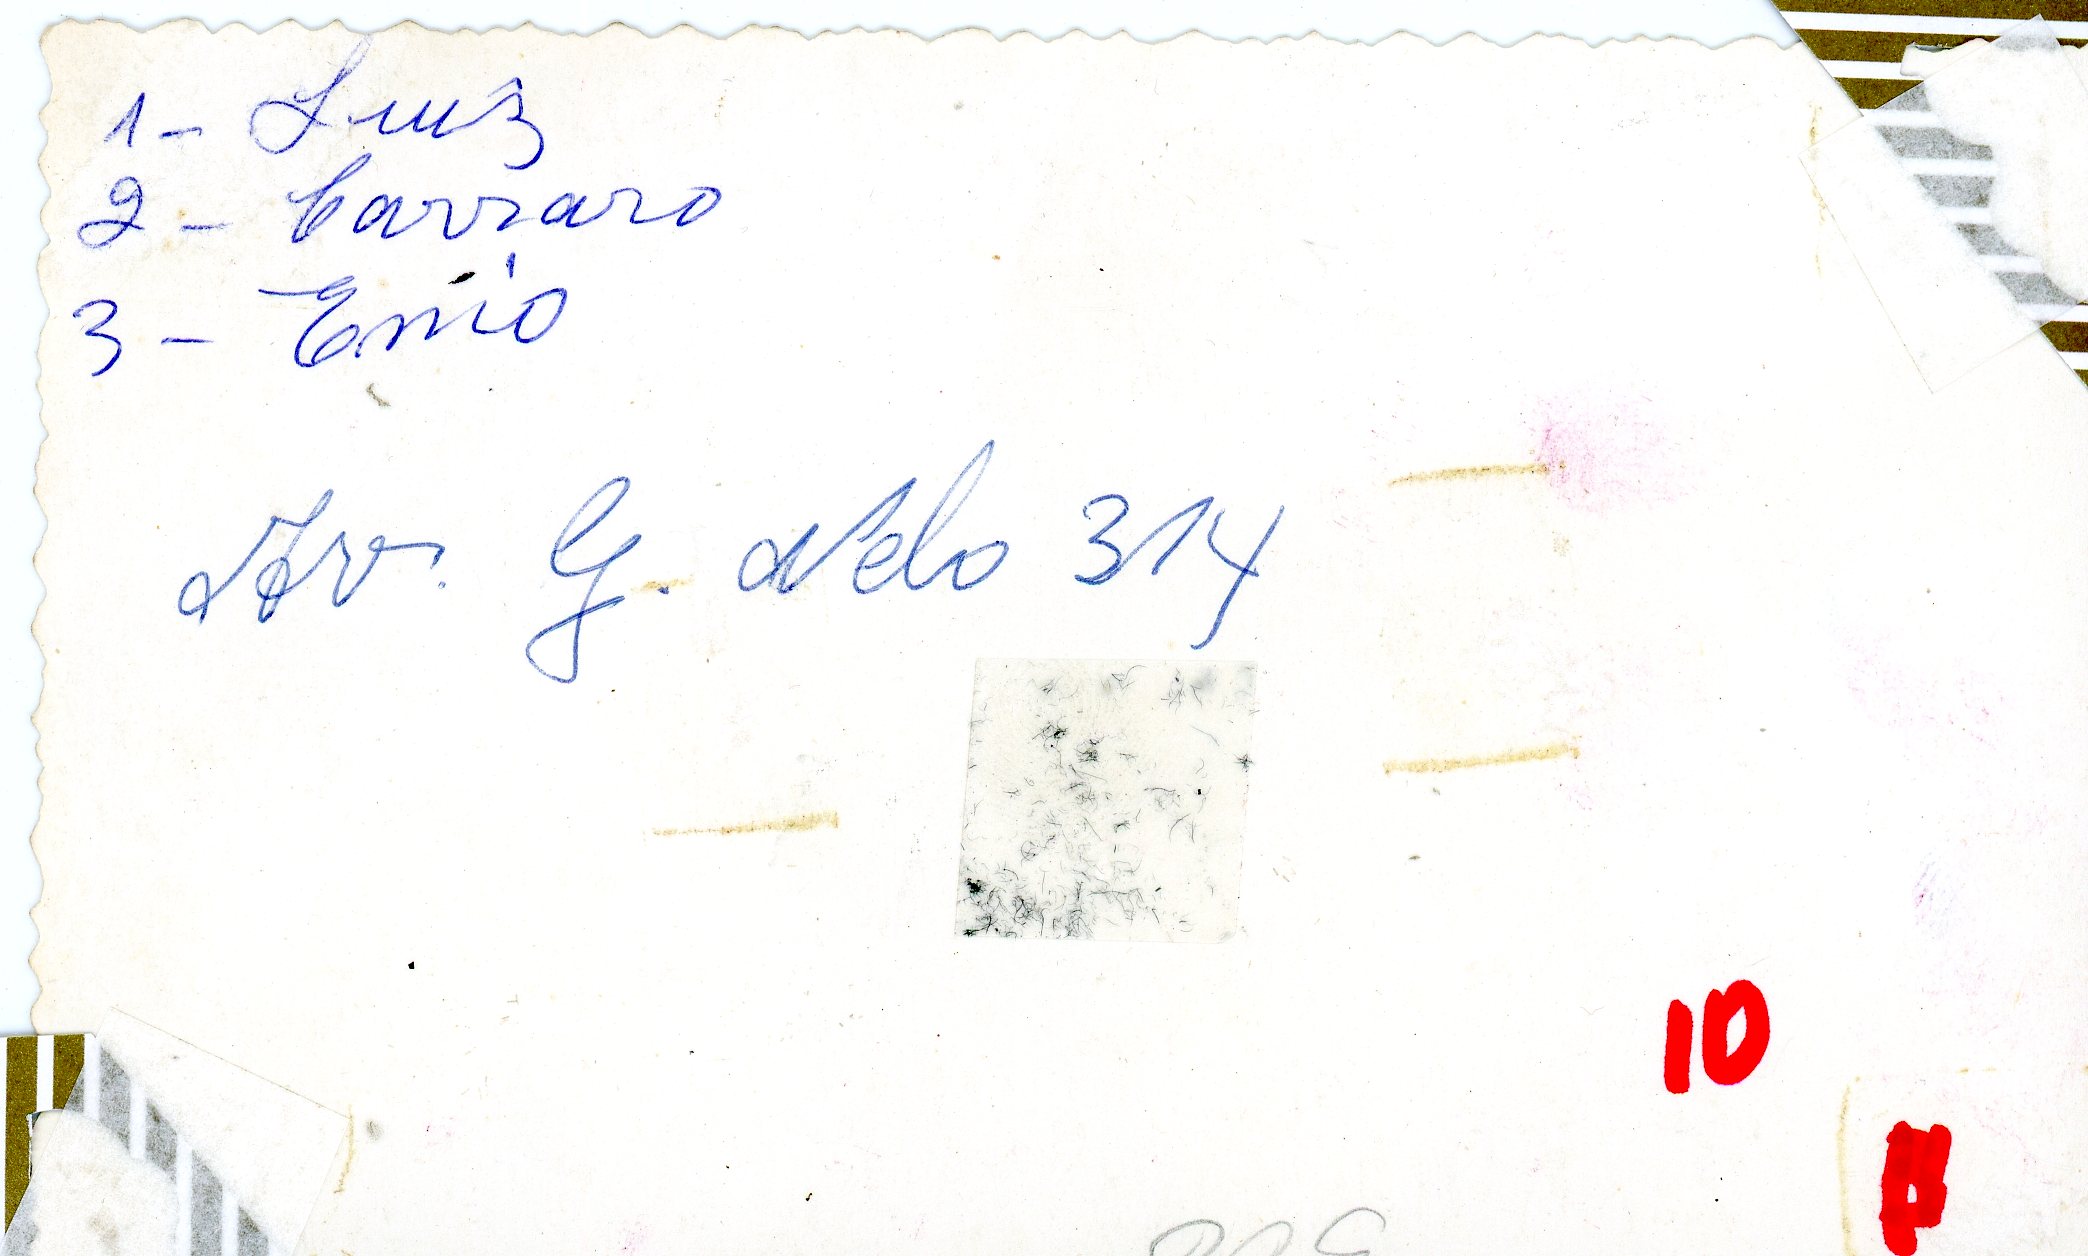 1 - Luiz
2 - Carraro
3 - Enio
Av. G. Nelo 314
10